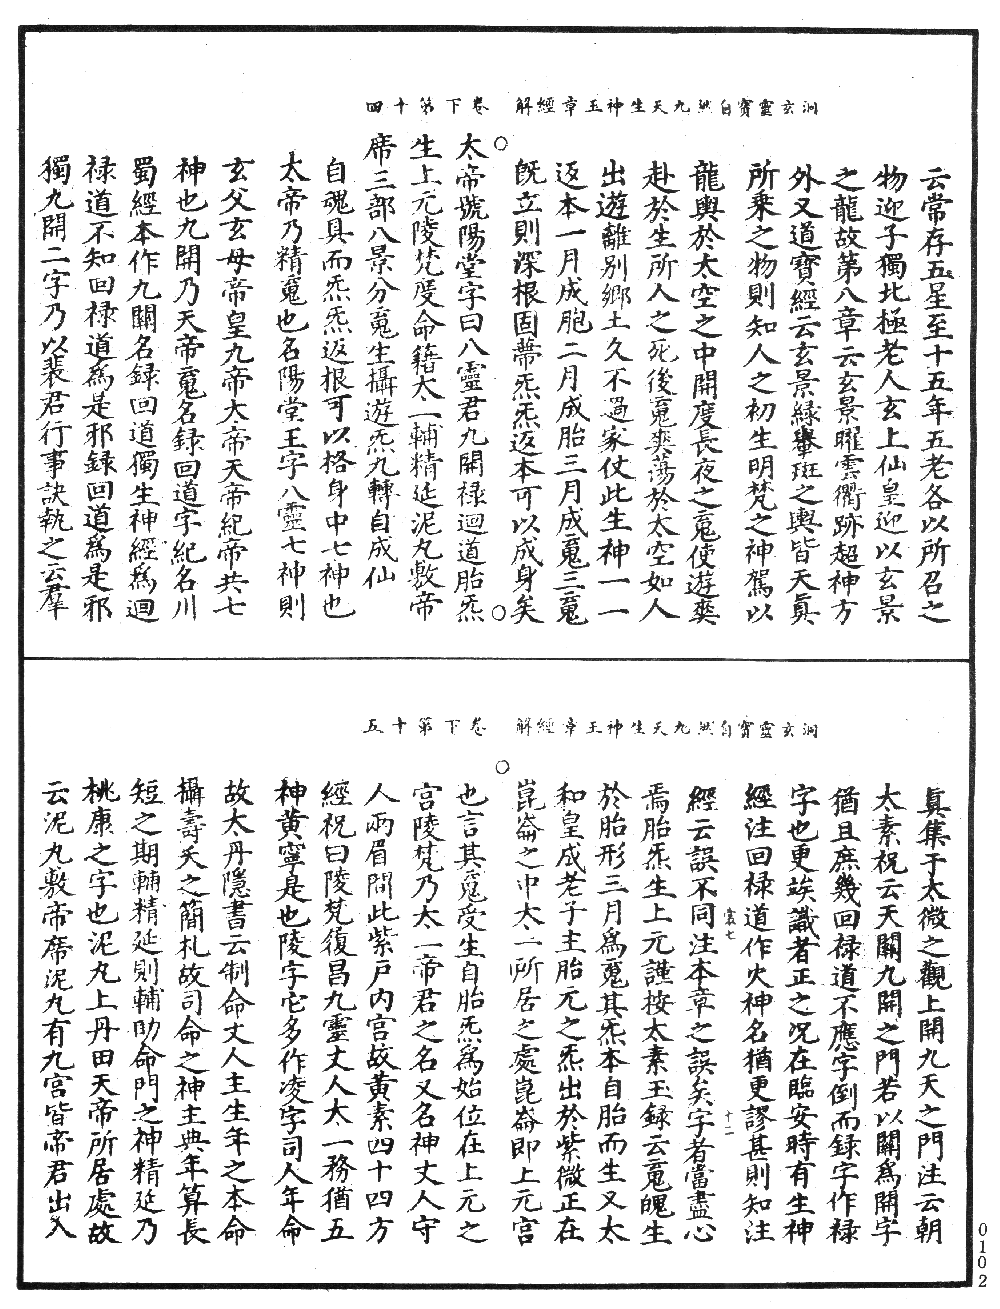 洞玄靈寶自然九天生神玉章經解　卷下第十四
云常存五星至十五年五老各以所召之
物迎子獨北極老人玄上仙皇迎以玄景
之龍故第八章云玄景曜雲衢跡超神方
外又道寶經云玄景綠轝斑之輿皆天真
所乘之物則知人之初生明梵之神駕以
龍輿於太空之中開度長夜之䰟使遊爽
赴於生所人之死後䰟爽蕩於太空如人
出遊離别鄉土久不過家仗此生神一一
返本一月成胞二月成胎三月成䰟三䰟
既立則深根固蔕炁炁返本可以成身矣
○　　　　　　　　○
太帝號陽堂字曰八靈君九開禄迴道胎炁
生上元陵梵度命籍太一輔精延泥丸敷帝
席三部八景分䰟生攝遊炁九轉自成仙
自魂具而炁炁返根可以格身中七神也
太帝乃精䰟也名陽堂王字八靈七神則
玄父玄母帝皇九帝太帝天帝紀帝共七
神也九開乃天帝䰟名録回道字紀名川
蜀經本作九關名録回道獨生神經爲迴
禄道不知回禄道爲是邪録回道爲是邪
獨九開二字乃以裴君行事訣執之云羣
洞玄靈寶自然九天生神玉章經解　卷下第十五
真集于太微之觀上開九天之門注云朝
太素祝云天關九開之門若以關爲開字
猶且庶幾回禄道不應字倒而録字作禄
字也更竢識者正之况在臨安時有生神
經注回禄道作火神名猶更謬甚則知注
經云誤不同注本章之誤矣字者當盡心
裳七　十二
焉胎炁生上元謹按太素玉録云䰟魄生
於胎形三月爲䰟其炁本自胎而生又太
和皇成老子主胎元之炁出於紫微正在
崑崙之中太一所居之處崑崙即上元宫
○
也言其䰟受生自胎炁爲始位在上元之
宫陵梵乃太一帝君之名又名神丈人守
人兩眉間此紫戶内宫故黄素四十四方
經祝曰陵梵復昌九靈丈人太一務猶五
神黄寧是也陵字它多作凌字司人年命
故太丹隱書云制命丈人主生年之本命
攝壽夭之簡札故司命之神主典年算長
短之期輔精延則輔助命門之神精延乃
桃康之字也泥丸上丹田天帝所居處故
云泥丸敷帝席泥丸有九宫皆帝君出入
0102